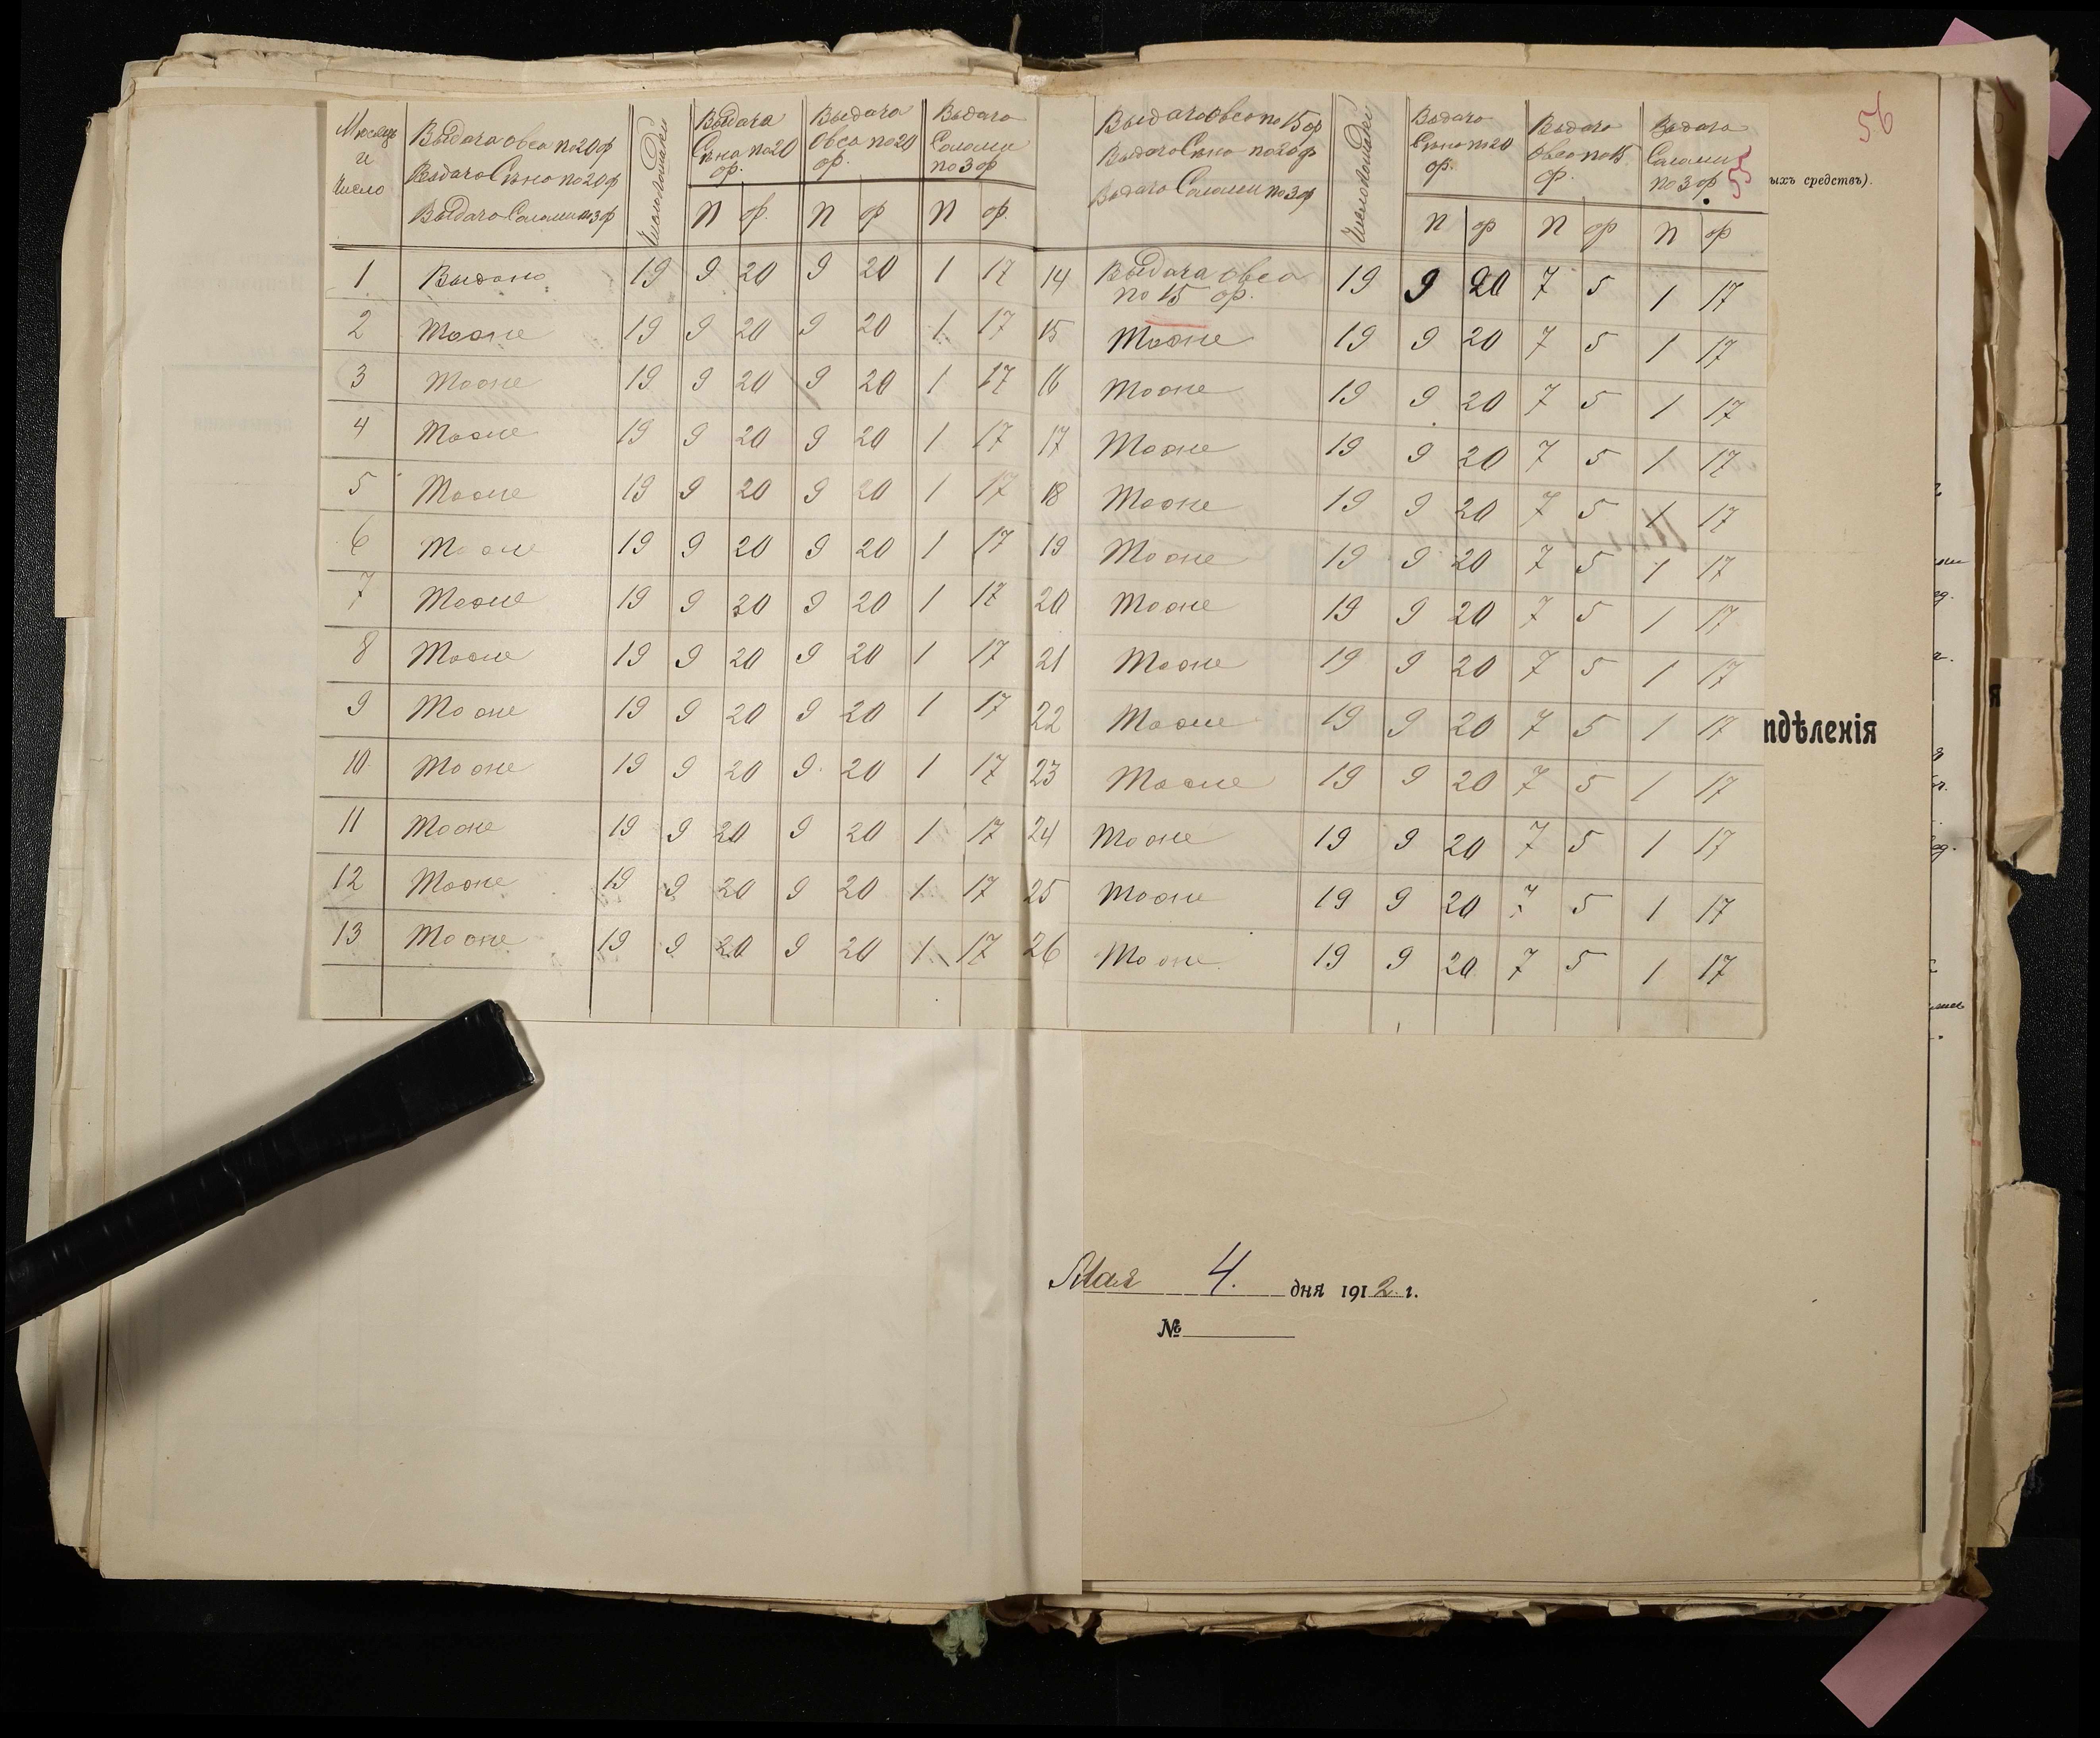 56
55
ыхъ средствъ).
Мѣсяцъ и Число
Выдача овса по 20 ф
Выдача Сѣна по 20 ф
Выдача Соломы по 3 ф
Число лошадей
Выдача Сѣна по 20 ф.
Выдача Овса по 20 ф.
Выдача Соломы по 3 ф
п ф. п ф п ф.
1 Выдано 19 9 20 9 20 1 17
2 Тоже 19 9 20 9 20 1 17
3 Тоже 19 9 20 9 20 1 17
4 Тоже 19 9 20 9 20 1 17
5 Тоже 19 9 20 9 20 1 17
6 Тоже 19 9 20 9 20 1 17
7 Тоже 19 9 20 9 20 1 17
8 Тоже 19 9 20 9 20 1 17
9 Тоже 19 9 20 9 20 1 17
10 Тоже 19 9 20 9 20 1 17
11 Тоже 19 9 20 9 20 1 17
12 Тоже 19 9 20 9 20 1 17
13 Тоже 19 9 20 9 20 1 17
Выдача Овса по 15 ф
Выдача Сѣна по 20 ф
Выдача Соломы по 3 ф
Число лошадей
Выдача Сѣна по 20 ф.
Выдача Овса по 15 ф.
Выдача Соломы по 3 ф.
п ф п ф п ф
14 Выдача овса по 15 ф. 19 9 20 7 5 1 17
15 Тоже 19 9 20 7 5 1 17
16 Тоже 19 9 20 7 5 1 17
17 Тоже 19 9 20 7 5 1 17
18 Тоже 19 9 20 7 5 1 17
19 Тоже 19 9 20 7 5 1 17
20 Тоже 19 9 20 7 5 1 17
21 Тоже 19 9 20 7 5 1 17
22 Тоже 19 9 20 7 5 1 17
23 Тоже 19 9 20 7 5 1 17
24 Тоже 19 9 20 7 5 1 17
25 Тоже 19 9 20 7 5 1 17
26 Тоже 19 9 20 7 5 1 17
пдѣленія
Мая 4. дня 1912 г.
№